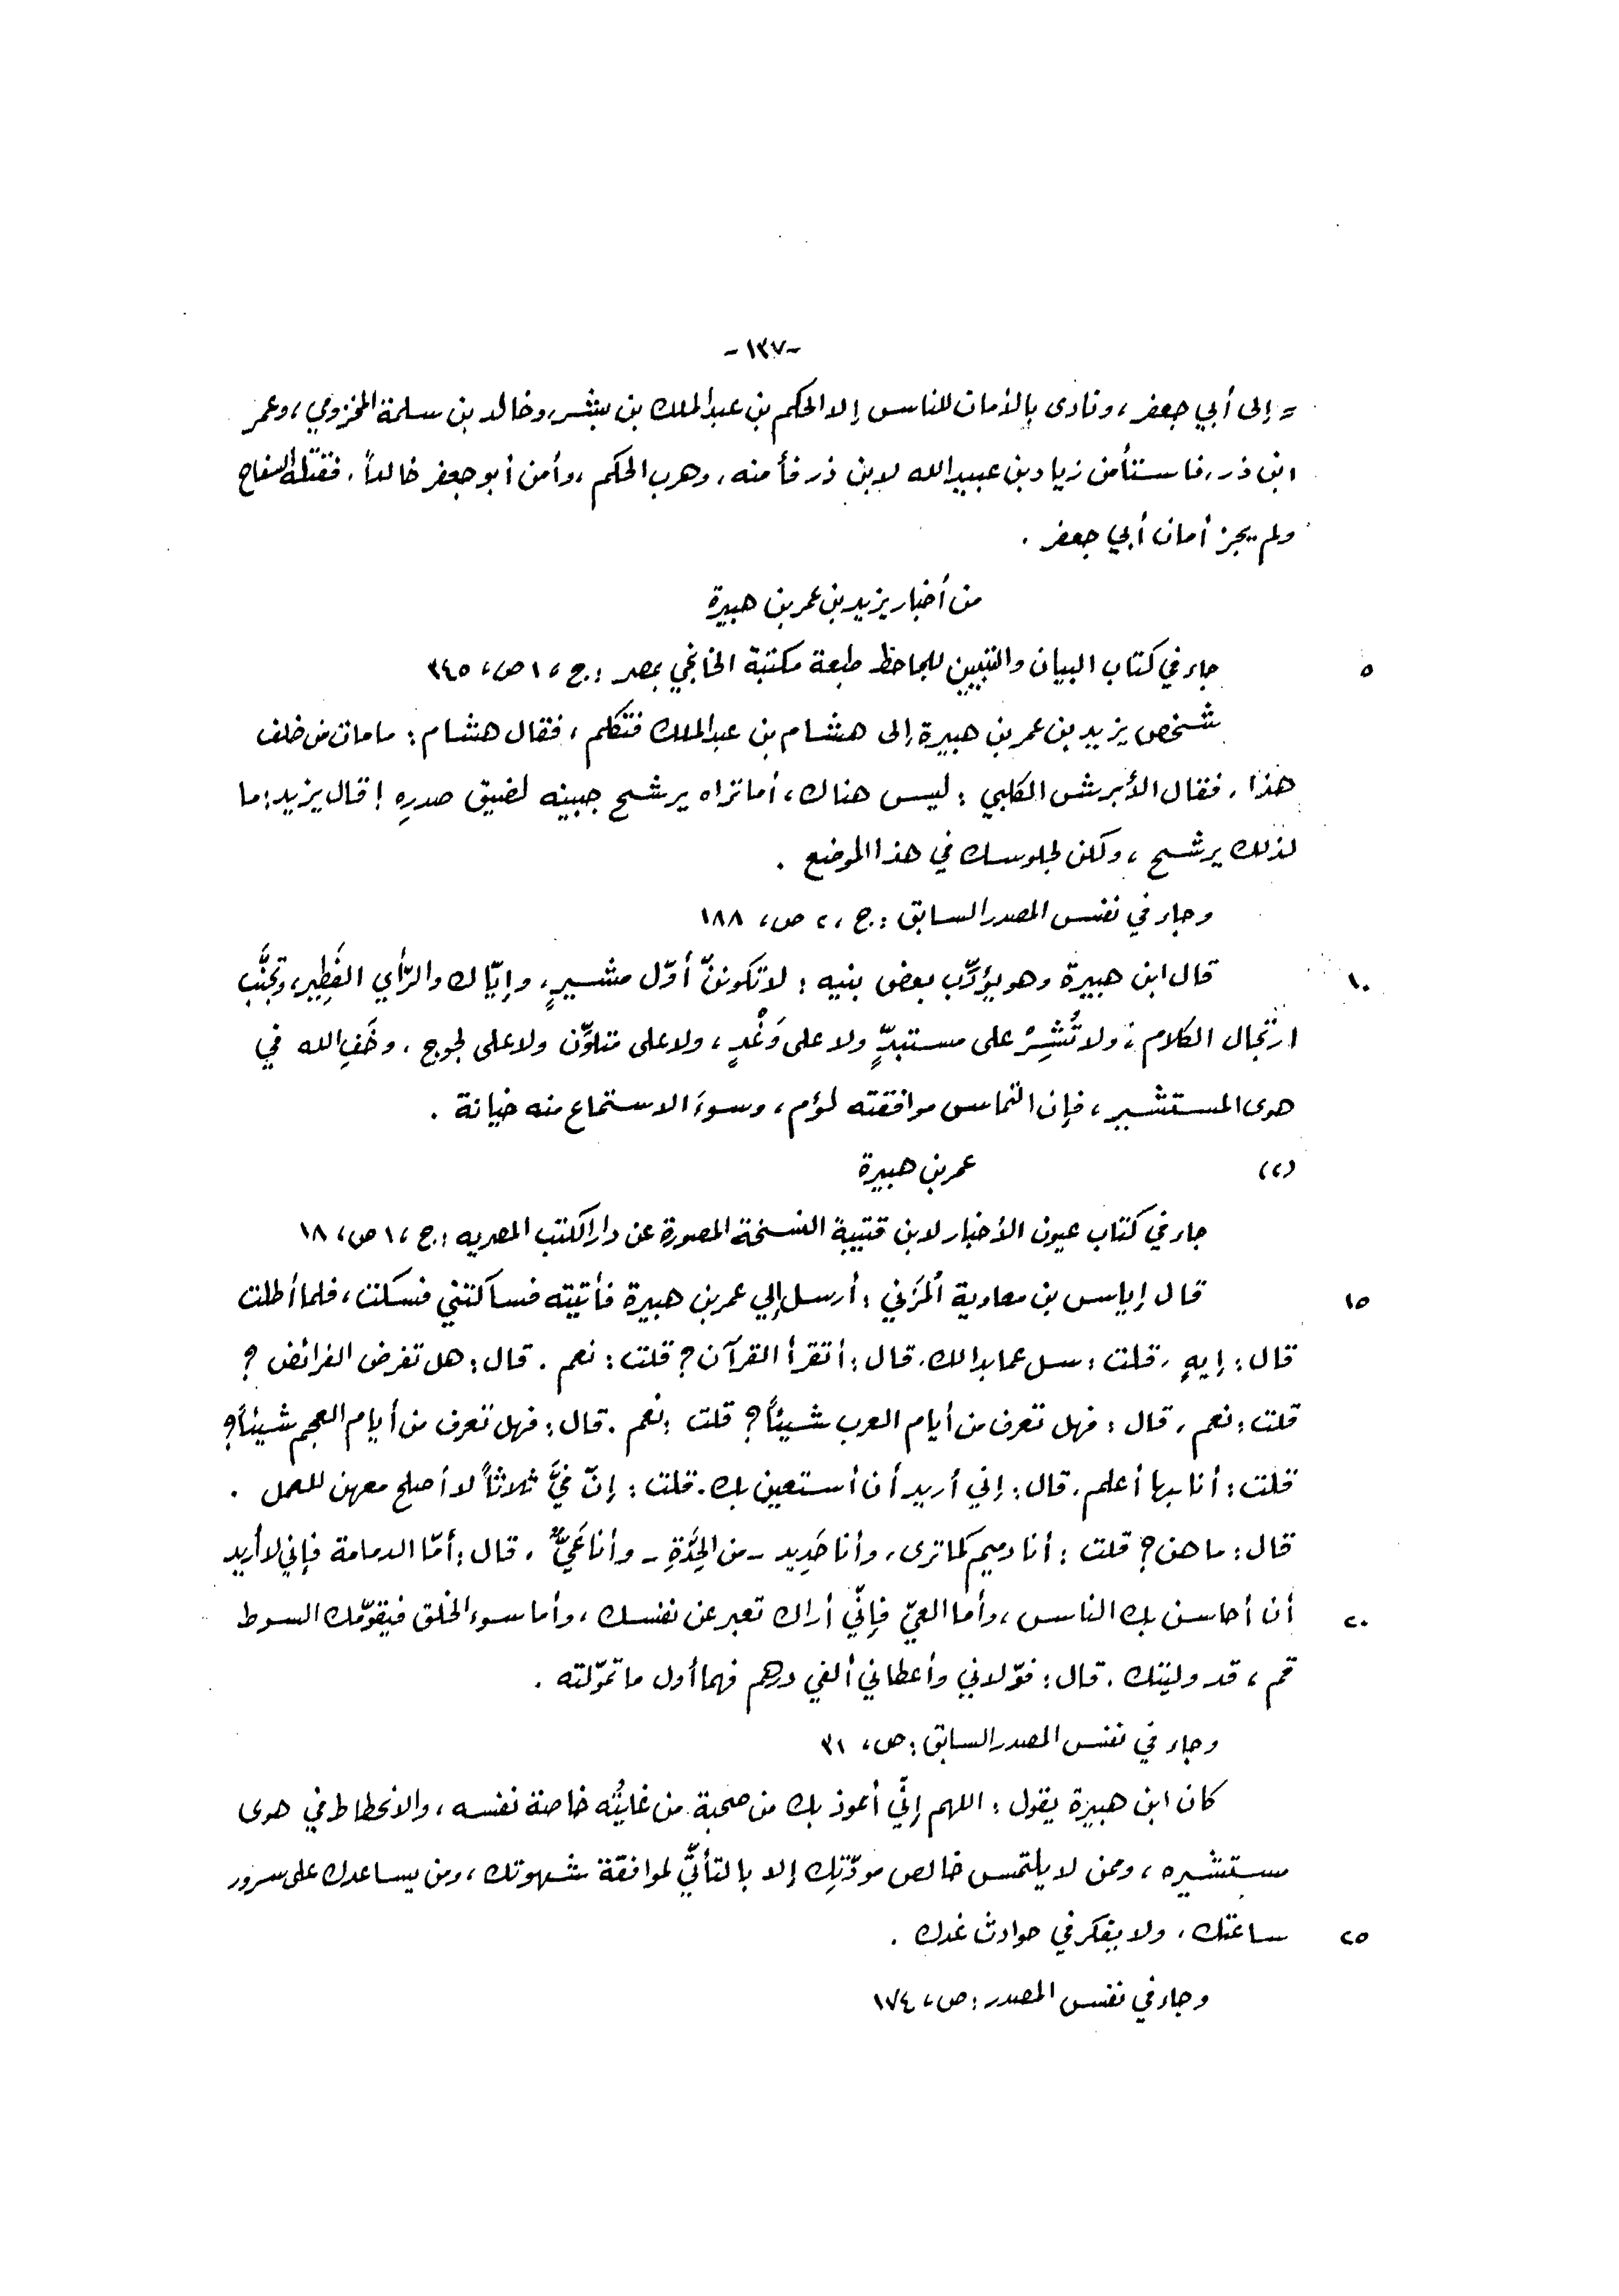 -١٣٧-
= إلى أبي جعفر، ونادى بالأمان للناس إلا الحكم بن عبد الملك بن بشر، وخالد بن سلمة المخزومي، وعمر
ابن ذر، فاستأمن زياد بن عبيد الله لابن ذر فأمنه، وهرب الحكم، وأمن أبو جعفر خالداً، فقتله السفاح
ولم يجز أمان أبي جعفر .
من أخبار يزيد بن عمر بن هبيرة
٥ جاء في كتاب البيان والتبيين للجاحظ طبعة مكتبة الخانجي بمصر : ج، ١ ص، ٣٤٥
شخص يزيد بن عمر بن هبيرة إلى هشام بن عبد الملك فتكلم، فقال هشام : ما مات من خلف
هذا، فقال الأبرش الكلبي : ليس هناك، أما تراه يرشح جبينه لضيق صدرِهِ ! قال يزيد : ما
لذلك يرشح، ولكن لجلوسك في هذا الموضع .
وجاء في نفس المصدر السابق : ج، ٢ ص، ١٨٨
١٠ قال ابن هبيرة وهو يؤدِّب بعض بنيه : لا تكوننّ أوّل مشيرٍ، وإيّاك والرّأي الفَطِير، وتجنَّب
ارتجال الكلام، ولا تُشِرْ على مستبدٍّ ولا على وَغْدٍ، ولا على متلوِّن ولا على لجوج، وخَفِ الله في
هوى المستشير، فإن التماس موافقته لؤم، وسوءَ الاستماع منه خيانة .
(٢) عمر بن هبيرة
جاء في كتاب عيون الأخبار لابن قتيبة النسخة المصورة عن دار الكتب المصريه : ج، ١ ص، ١٨
١٥ قال إياس بن معاوية المُزَني : أرسل إلي عمر بن هبيرة فأتيته فساكتني فسكت، فلما أطلت
قال : إيهٍ، قلت : سل عما بدالك، قال : أتقرأ القرآن ؟ قلت : نعم . قال : هل تفرض الفرائض ؟
قلت : نعم، قال : فهل تعرف من أيام العرب شيئاً ؟ قلت : نعم . قال : فهل تعرف من أيام العجم شيئاً ؟
قلت : أنا بها أعلم، قال : إني أريد أن أستعين بك . قلت : إنّ فيَّ ثلاثاً لا أصلح معهن للعمل .
قال : ما هن ؟ قلت : أنا دميم كما ترى، وأنا حَدِيد - من الحِدَّةِ - وأنا عَيٌّ، قال : أمّا الدمامة فإني لا أريد
٢٠ أن أحاسن بك الناس، وأما العيّ فإنّي أراك تعبر عن نفسك، وأما سوء الخلق فيقوّمك السوط
قم، قد وليتك، قال : فولّاني وأعطاني ألفي درهم فهما أول ما تموّلته .
وجاء في نفس المصدر السابق : ص، ٣١
كان ابن هبيرة يقول : اللهم إنّي أعوذ بك من صحبة من غايتُه خاصة نفسه، والانحطاط في هوى
مستشيره، وممن لا يلتمس خالص مودّتِك إلا بالتأتِّي لموافقة شهوتك، ومن يساعدك على سرور
٢٥ ساعتك، ولا يفكر في حوادث غدك .
وجاء في نفس المصدر : ص، ١٧٤